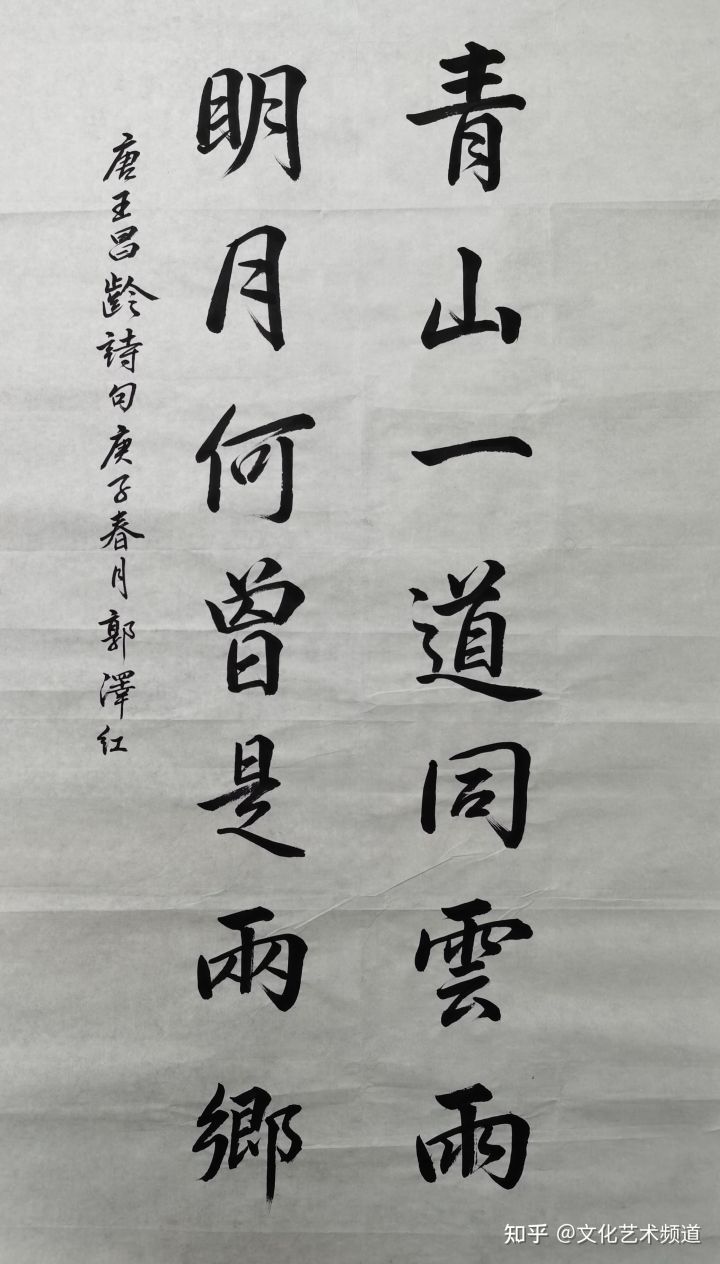 青山一道同雲雨
明月何曾是兩鄉
唐王昌齡詩句庚子春月郭澤红
知乎 @文化艺术频道